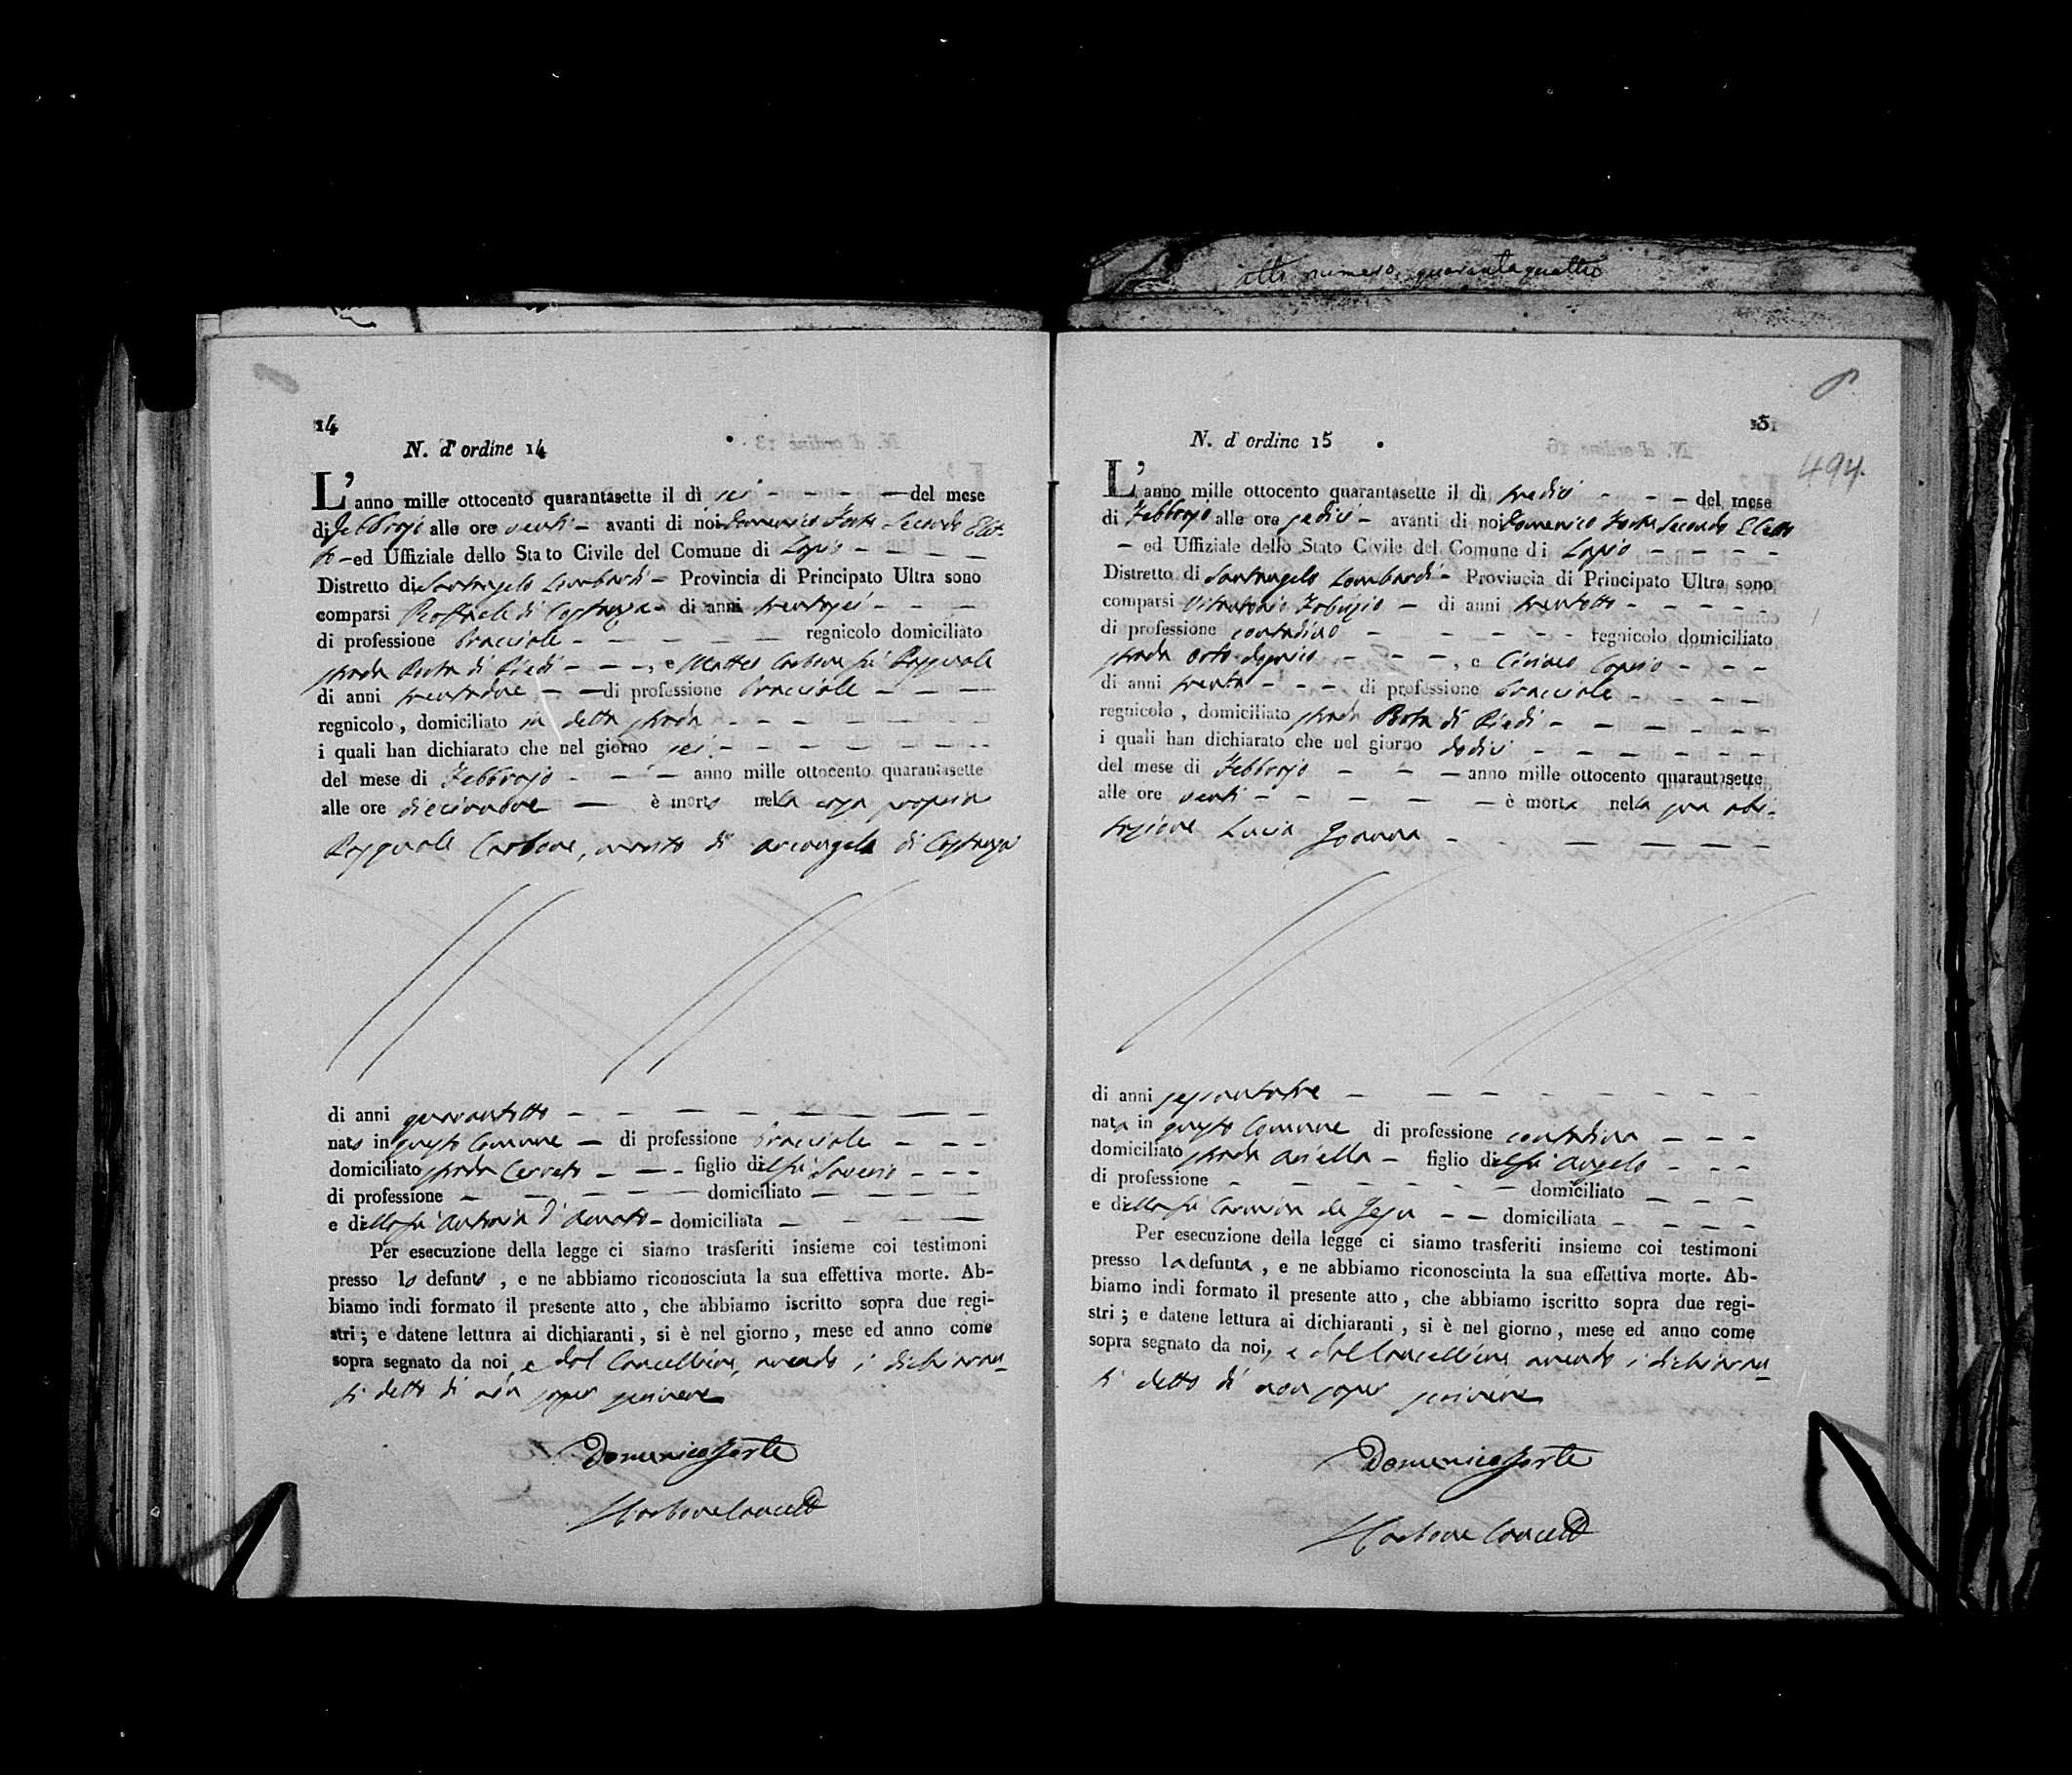 atto numero quarantaquattro
14
N. d'ordine 14
L'anno mille ottocento quarantasette il dì sei - - - - del mese
di Febbrajo alle ore venti - avanti di noi Domenico Forte Secondo Elet-
to - ed Uffiziale dello Stato Civile del Comune di Lapio - - - -
Distretto di Santangelo Lombardi - Provincia di Principato Ultra sono
comparsi Raffaele di Costanza - di anni trentasei - - - -
di professione bracciale - - - - - regnicolo domiciliato
strada Porta di Piedi - - -, e Matteo Carbone fu Pasquale
di anni trentadue - - di professione bracciale - - - -
regnicolo, domiciliato in detta strada - - - - - - -
i quali han dichiarato che nel giorno sei - - - - - - -
del mese di Febbrajo - - - anno mille ottocento quarantasette
alle ore diecinove - è morto nella casa propria
Pasquale Carbone, marito di Arcangela di Costanza
di anni quarantotto - - - - - - - -
nato in questo Comune - di professione bracciale - - -
domiciliato strada Cerreto - - - figlio del fu Saverio - - -
di professione - - - - - domiciliato - - - -
e della fu Antonia d'Amato - domiciliata - - - -
Per esecuzione della legge ci siamo trasferiti insieme coi testimoni
presso lo defunto, e ne abbiamo riconosciuta la sua effettiva morte. Ab-
biamo indi formato il presente atto, che abbiamo iscritto sopra due regi-
stri; e datene lettura ai dichiaranti, si è nel giorno, mese ed anno come
sopra segnato da noi, e dal Cancelliere, avendo i dichiaran-
ti detto di non saper scrivere
Domenico Forte
Carbone Cancell
15
494.
N. d'ordine 15
L'anno mille ottocento quarantasette il dì tredici - - - del mese
di Febbrajo alle ore sedici - avanti di noi Domenico Forte Secondo Eletto
- ed Uffiziale dello Stato Civile del Comune di Lapio - - - -
Distretto di Santangelo Lombardi - Provincia di Principato Ultra sono
comparsi Vitantonio Fabrizio - di anni trentotto - - - - -
di professione contadino - - - - - regnicolo domiciliato
strada - - -, e Ciriaco Caprio - - -
di anni trenta - - - di professione bracciale - - - -
regnicolo, domiciliato strada Porta di Piedi - - - - -
i quali han dichiarato che nel giorno dodici - - - - - -
del mese di Febbrajo - - - anno mille ottocento quarantasette
alle ore venti - - - - - è morta nella sua abi-
tazione Lucia - - - - - -
di anni sessantatre - - - - - - - -
nata in questo Comune di professione contadina - - -
domiciliato strada Ariella - figlio del fu Angelo - - -
di professione - - - - - - domiciliato - - -
e della fu Carmina de Jesu - - domiciliata - - - -
Per esecuzione della legge ci siamo trasferiti insieme coi testimoni
presso la defunta, e ne abbiamo riconosciuta la sua effettiva morte. Ab-
biamo indi formato il presente atto, che abbiamo iscritto sopra due regi-
stri; e datene lettura ai dichiaranti, si è nel giorno, mese ed anno come
sopra segnato da noi, e dal Cancelliere, avendo i dichiaran-
ti detto di non saper scrivere
Domenico Forte
Carbone Cancell